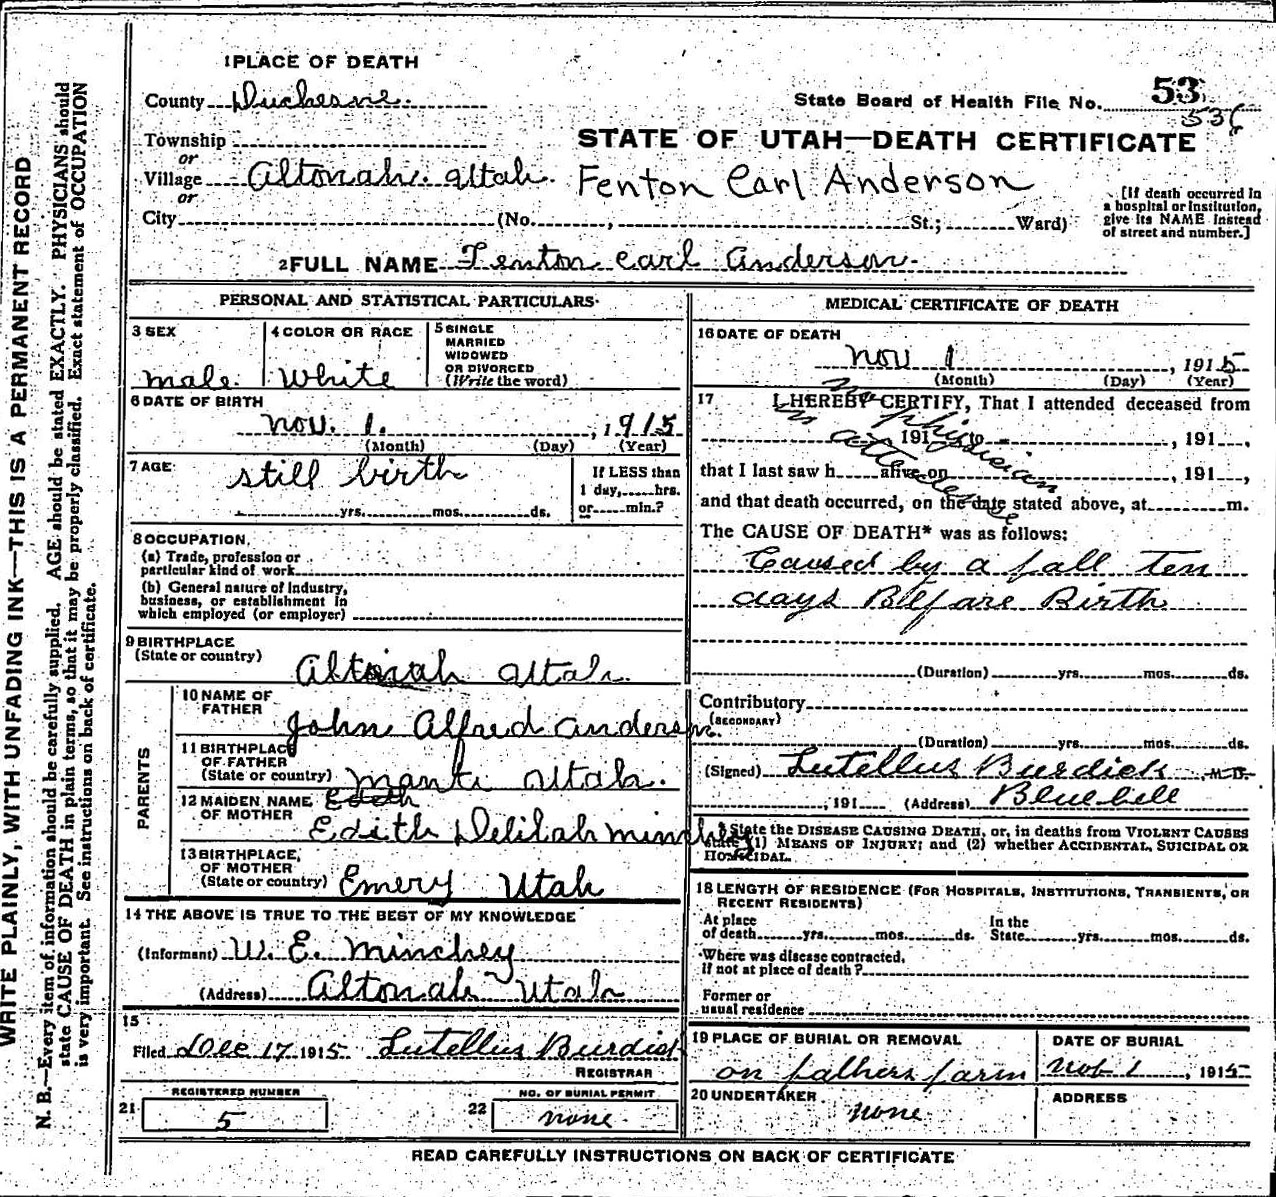 WRITE PLAINLY, WITH UNFADING INK—THIS IS A PERMANENT RECORD
N. B.—Every item of information should be carefully supplied. AGE should be stated EXACTLY. PHYSICIANS should
state CAUSE OF DEATH in plain terms, so that it may be properly classified. Exact statement of OCCUPATION
is very important. See instructions on back of certificate.
1 PLACE OF DEATH
County Duchesne.
State Board of Health File No. 53
536
Township
or
Village Altonah. Utah.
or
City (No. , St.; Ward)
STATE OF UTAH—DEATH CERTIFICATE
Fenton Earl Anderson
[If death occurred in
a hospital or institution,
give its NAME instead
of street and number.]
2 FULL NAME Fenton Earl Anderson.
PERSONAL AND STATISTICAL PARTICULARS
3 SEX
male.
4 COLOR OR RACE
White
5 SINGLE
MARRIED
WIDOWED
OR DIVORCED
(Write the word)
6 DATE OF BIRTH
nov. 1. , 1915
(Month) (Day) (Year)
7 AGE
still birth
yrs. mos. ds.
If LESS than
1 day, hrs.
or min.?
8 OCCUPATION
(a) Trade, profession or
particular kind of work
(b) General nature of industry,
business, or establishment in
which employed (or employer)
9 BIRTHPLACE
(State or country)
Altonah Utah.
PARENTS
10 NAME OF
FATHER
John Alfred Anderson.
11 BIRTHPLACE
OF FATHER
(State or country) Manti Utah.
12 MAIDEN NAME
OF MOTHER
Edeth
Edith Delilah Minchey
13 BIRTHPLACE,
OF MOTHER
(State or country) Emery Utah
14 THE ABOVE IS TRUE TO THE BEST OF MY KNOWLEDGE
(Informant) W. E. Minchey
(Address) Altonah Utah
15
Filed Dec 17 1915 Lutellus Burdick
REGISTRAR
21
REGISTERED NUMBER
5
22
NO. OF BURIAL PERMIT
none.
MEDICAL CERTIFICATE OF DEATH
16 DATE OF DEATH
nov 1 , 1915
(Month) (Day) (Year)
17 I HEREBY CERTIFY, That I attended deceased from
191 to , 191 ,
that I last saw h alive on , 191 ,
and that death occurred, on the date stated above, at m.
no physician
in attendence
The CAUSE OF DEATH* was as follows:
Caused by a fall ten
days Beffare Birth
(Duration) yrs. mos. ds.
Contributory
(SECONDARY)
(Duration) yrs. mos. ds.
(Signed) Lutellus Burdick , M. D.
, 191 (Address) Bluebell
* State the DISEASE CAUSING DEATH, or, in deaths from VIOLENT CAUSES
state (1) MEANS OF INJURY; and (2) whether ACCIDENTAL, SUICIDAL OR
HOMICIDAL.
18 LENGTH OF RESIDENCE (FOR HOSPITALS, INSTITUTIONS, TRANSIENTS, OR
RECENT RESIDENTS)
At place
of death yrs. mos. ds.
In the
State yrs. mos. ds.
Where was disease contracted,
if not at place of death?
Former or
usual residence
19 PLACE OF BURIAL OR REMOVAL
on fathers farm
DATE OF BURIAL
Nov 1 , 1915
20 UNDERTAKER
none.
ADDRESS
READ CAREFULLY INSTRUCTIONS ON BACK OF CERTIFICATE